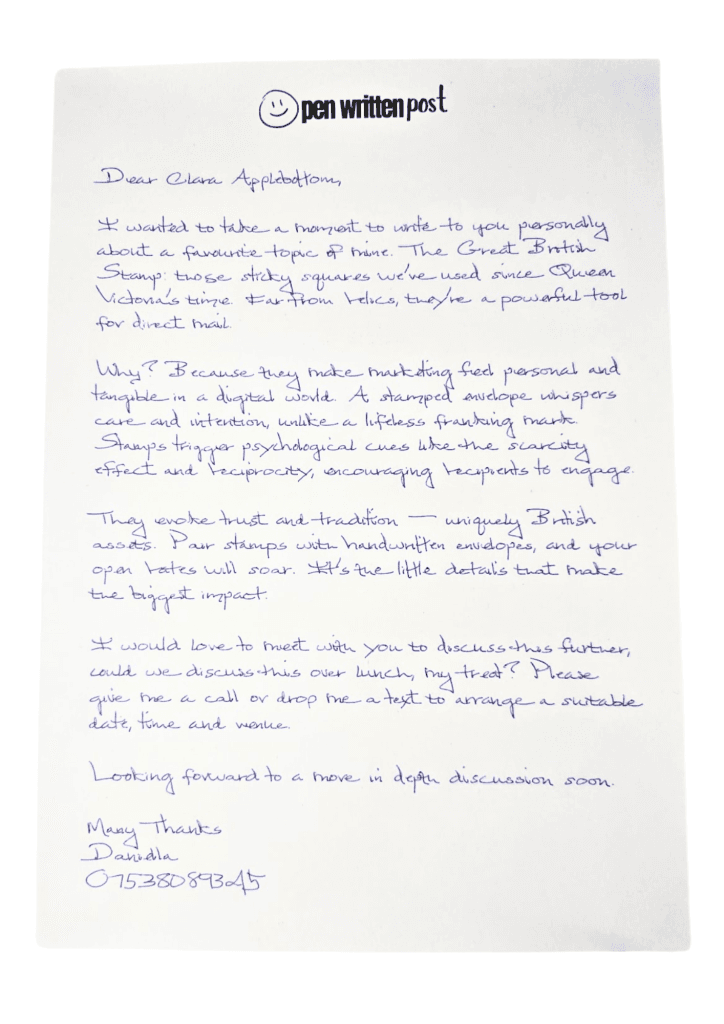 pen written post
Dear Clara Applebottom,
I wanted to take a moment to write to you personally
about a favourite topic of mine. The Great British
Stamp: those sticky squares we've used since Queen
Victoria's time. Far from relics, they're a powerful tool
for direct mail.
Why? Because they make marketing feel personal and
tangible in a digital world. A stamped envelope whispers
care and intention, unlike a lifeless franking mark.
Stamps trigger psychological cues like the scarcity
effect and reciprocity, encouraging recipients to engage.
They evoke trust and tradition — uniquely British
assets. Pair stamps with handwritten envelopes, and your
open rates will soar. It's the little details that make
the biggest impact.
I would love to meet with you to discuss this further,
could we discuss this over lunch, my treat? Please
give me a call or drop me a text to arrange a suitable
date, time and venue.
Looking forward to a more in depth discussion soon.
Many Thanks
Daniella
07538089345